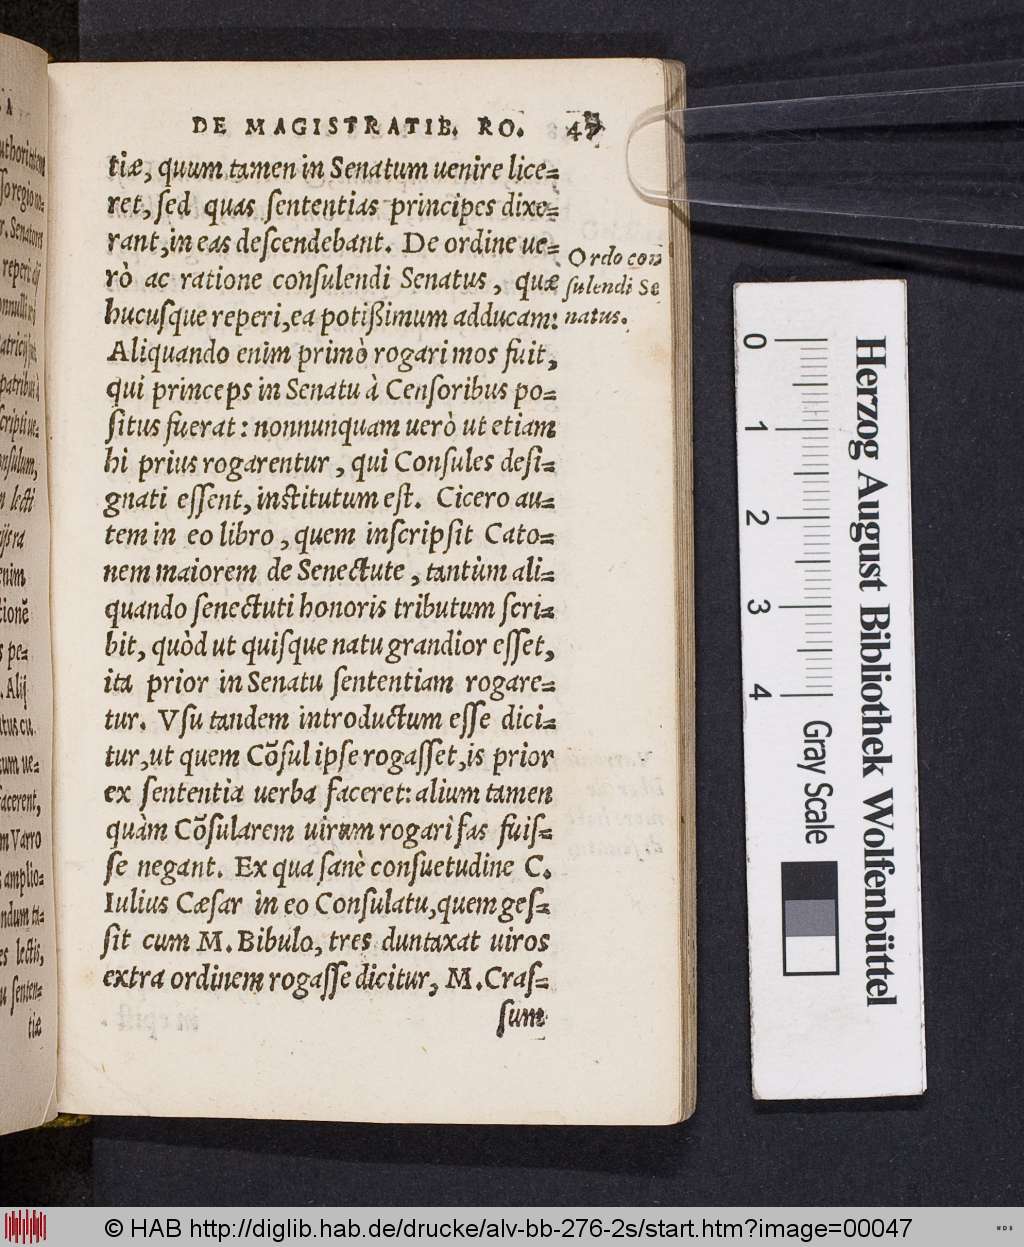 DE MAGISTRATIB. RO. 47
tiæ, quum tamen in Senatum uenire lice=
ret, sed quas sententias principes dixe=
rant, in eas descendebant. De ordine ue=
rò ac ratione consulendi Senatus, quæ
hucusque reperi, ea potißimum adducam:
Aliquando enim primò rogari mos fuit,
qui princeps in Senatu à Censoribus po=
situs fuerat: nonnunquam uerò ut etiam
hi prius rogarentur, qui Consules desi=
gnati essent, institutum est. Cicero au=
tem in eo libro, quem inscripsit Cato=
nem maiorem de Senectute, tantùm ali=
quando senectuti honoris tributum scri=
bit, quòd ut quisque natu grandior esset,
ita prior in Senatu sententiam rogare=
tur. Vsu tandem introductum esse dici=
tur, ut quem Cõsul ipse rogasset, is prior
ex sententia uerba faceret: alium tamen
quàm Cõsularem uirum rogari fas fuis=
se negant. Ex qua sanè consuetudine C.
Iulius Cæsar in eo Consulatu, quem ges=
sit cum M. Bibulo, tres duntaxat uiros
extra ordinem rogasse dicitur, M. Cras=
sum
Ordo con
sulendi Se
natus.
0 1 2 3 4
Gray Scale
Herzog August Bibliothek Wolfenbüttel
© HAB http://diglib.hab.de/drucke/alv-bb-276-2s/start.htm?image=00047